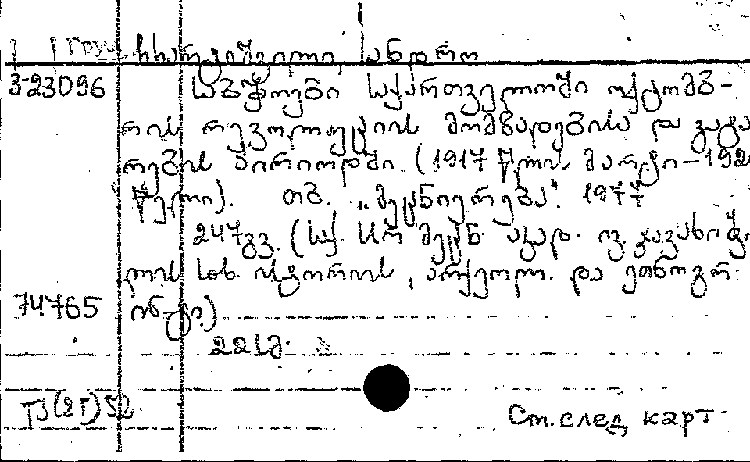 სხარტიშვილი, ანდრო
3-23096 საბჭოები საქართველოში ოქტომბ-
რის რევოლუციის მომზადებისა და გატა
რების პერიოდში. (1917 წლის მარტი–192
წელი). თბ. „მეცნიერება“. 1977
247გვ. (საქ. სსრ მეცნ. აკად. ივ. ჯავახიშ.
ლის სახ. ისტორიის, არქეოლ. და ეთნოგრ.
74765 ინ-ტი)
22სმ.
Т3(2Г)52
Ст. след карт